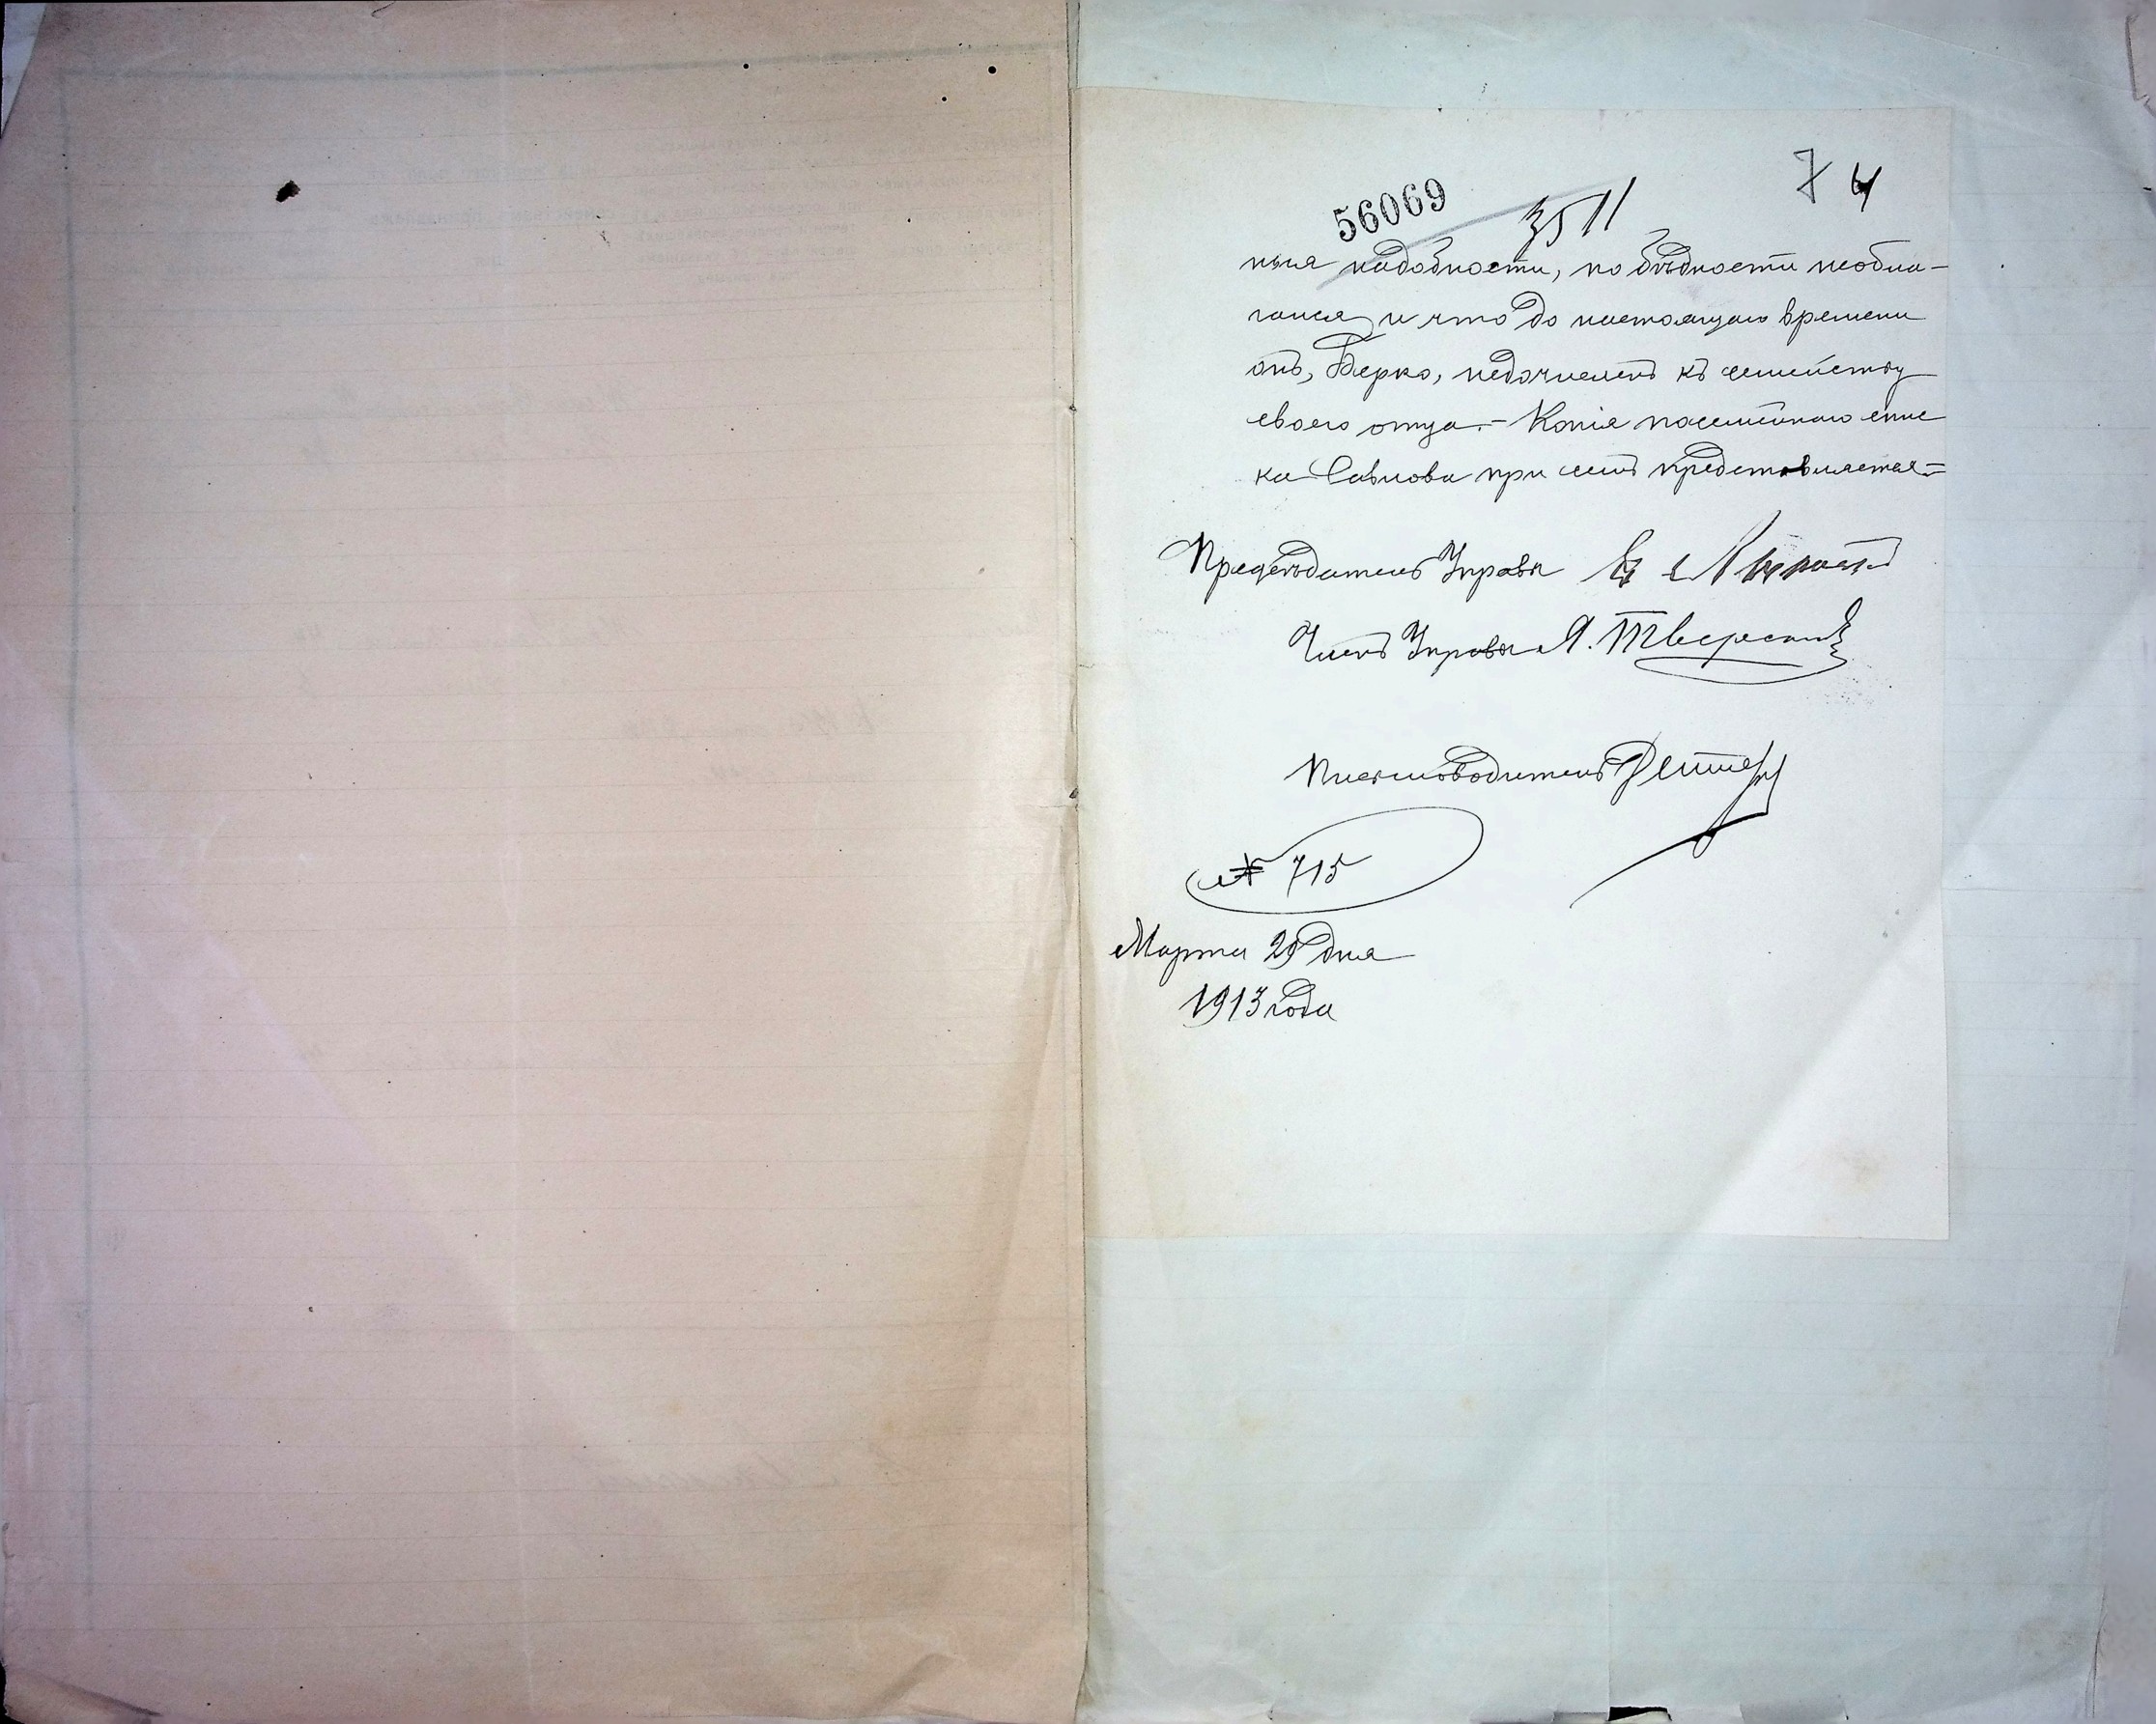 7 4
56069 3511
ныя надобности, по бѣдности необла-
гался и что до настоящаго времени
онъ, Берко, недочисленъ къ семейству
своего отца.- Копія посемейнаго спис
ка при семъ представляется.-
Предсѣдатель Управы
Членъ Управы Я. Тверской
Письмоводитель
№ 715
Марта 29 дня
1913 года